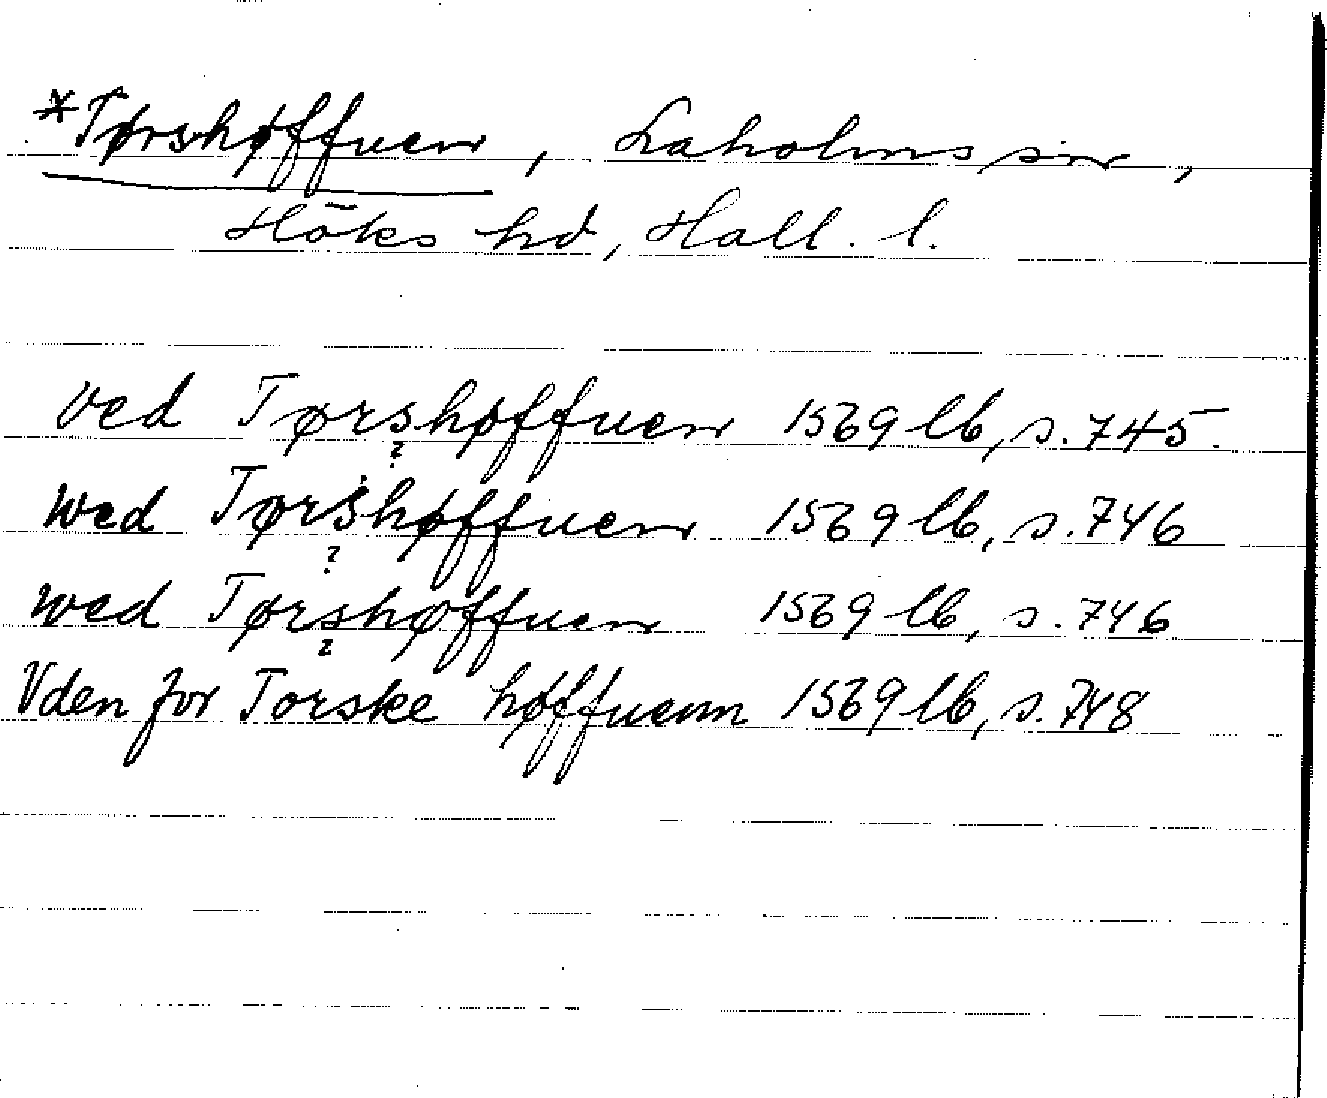 *Tørshøffuen, Laholms sn,
Höks hd, Hall. l.
ved Tørshøffuen 1569 lb, s. 745.
?
wed Tørshøffuen 1569 lb, s. 746
?
wed Tørshøffuen 1569 lb, s. 746
?
Vden for Torske høffuenn 1569 lb, s. 748